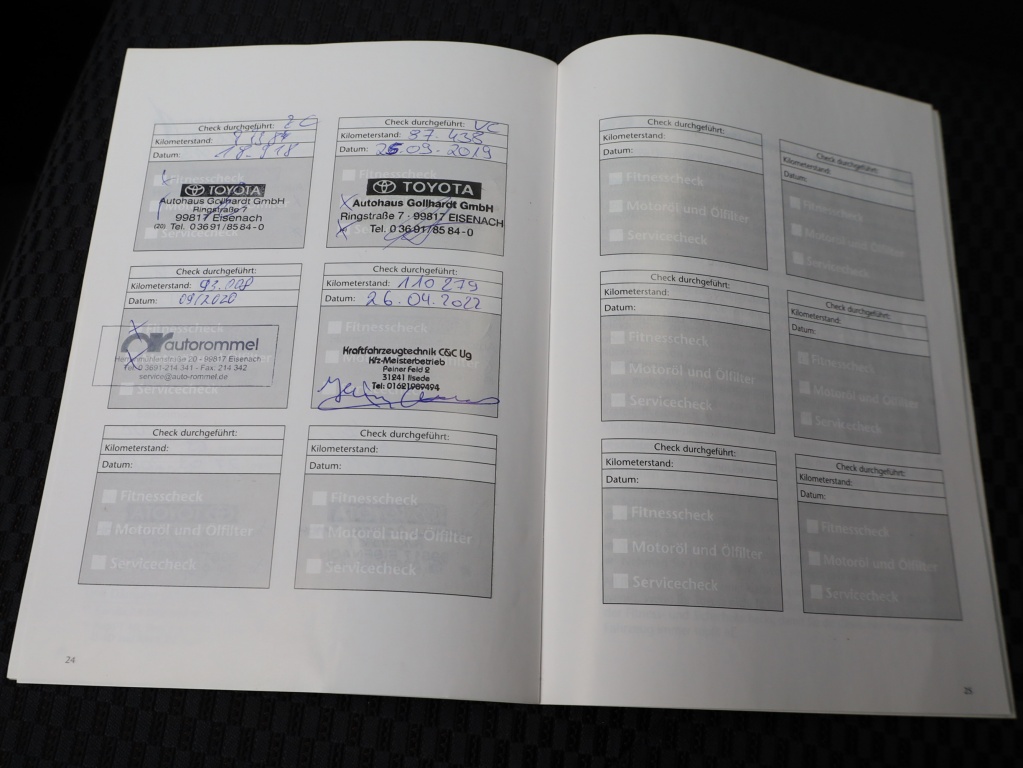 Check durchgeführt:
Kilometerstand:
Datum: 18.9.18
Fitnesscheck
TOYOTA
Autohaus Gollhardt GmbH
Ringstraße 7
99817 Eisenach
(20) Tel. 0 36 91/85 84-0
Check durchgeführt: VC
Kilometerstand: 87.438
Datum: 25.09.2019
TOYOTA
Autohaus Gollhardt GmbH
Ringstraße 7 · 99817 EISENACH
Tel. 0 36 91/85 84-0
Check durchgeführt:
Kilometerstand:
Datum: 09/2020
Fitnesscheck
autorommel
20 - 99817 Eisenach
Tel. 0 3691-214 341 - Fax: 214 342
service@auto-rommel.de
Servicecheck
Check durchgeführt:
Kilometerstand: 110 279
Datum: 26.04.2022
Fitnesscheck
Kraftfahrzeugtechnik C&C Ug
Kfz-Meisterbetrieb
Peiner Feld 2
31241 Ilsede
Tel: 01621989494
Check durchgeführt:
Kilometerstand:
Datum:
Fitnesscheck
Motoröl und Ölfilter
Servicecheck
Check durchgeführt:
Kilometerstand:
Datum:
Fitnesscheck
Motoröl und Ölfilter
Servicecheck
24
Check durchgeführt:
Kilometerstand:
Datum:
Fitnesscheck
Motoröl und Ölfilter
Servicecheck
Check durchgeführt:
Kilometerstand:
Datum:
Fitnesscheck
Motoröl und Ölfilter
Servicecheck
Check durchgeführt:
Kilometerstand:
Datum:
Fitnesscheck
Motoröl und Ölfilter
Servicecheck
Check durchgeführt:
Kilometerstand:
Datum:
Fitnesscheck
Motoröl und Ölfilter
Servicecheck
Check durchgeführt:
Kilometerstand:
Datum:
Fitnesscheck
Motoröl und Ölfilter
Servicecheck
Check durchgeführt:
Kilometerstand:
Datum:
Fitnesscheck
Motoröl und Ölfilter
Servicecheck
25